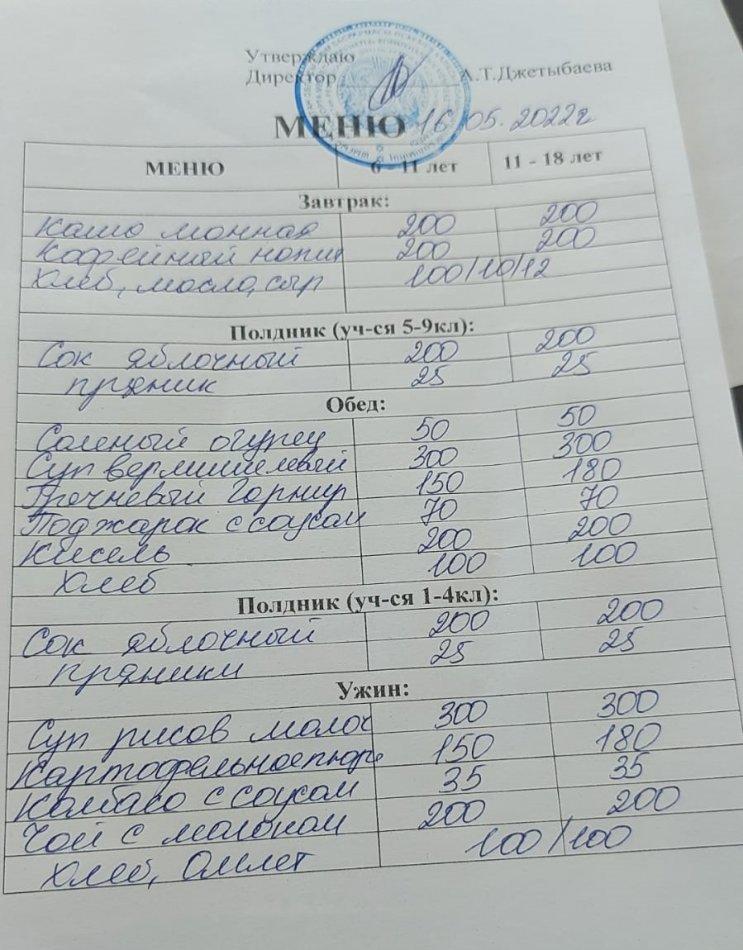 Утверждаю
Директор А.Т.Джетыбаева
МЕНЮ 16.05.2022г
МЕНЮ 6 - 11 лет 11 - 18 лет
Завтрак:
Каша манная 200 200
Кофейный напит 200 200
Хлеб, масло, сыр 100/10/12
Полдник (уч-ся 5-9кл):
Сок яблочный 200 200
пряник 25 25
Обед:
Соленый огурец 50 50
Суп вермишелевый 300 300
Гречневый гарнир 150 180
Поджарок с соусом 70 70
Кисель 200 200
Хлеб 100 100
Полдник (уч-ся 1-4кл):
Сок яблочный 200 200
пряники 25 25
Ужин:
Суп рисов молоч 300 300
Картофельное пюре 150 180
Колбаса с соусом 35 35
Чай с молоком 200 200
Хлеб, Омлет 100/100